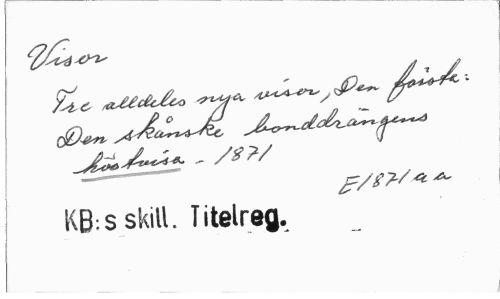 Visor
Tre alldeles nya visor, Den första:
Den skånske bonddrängens
höstvisa - 1871
E1871aa
KB:s skill. Titelreg.